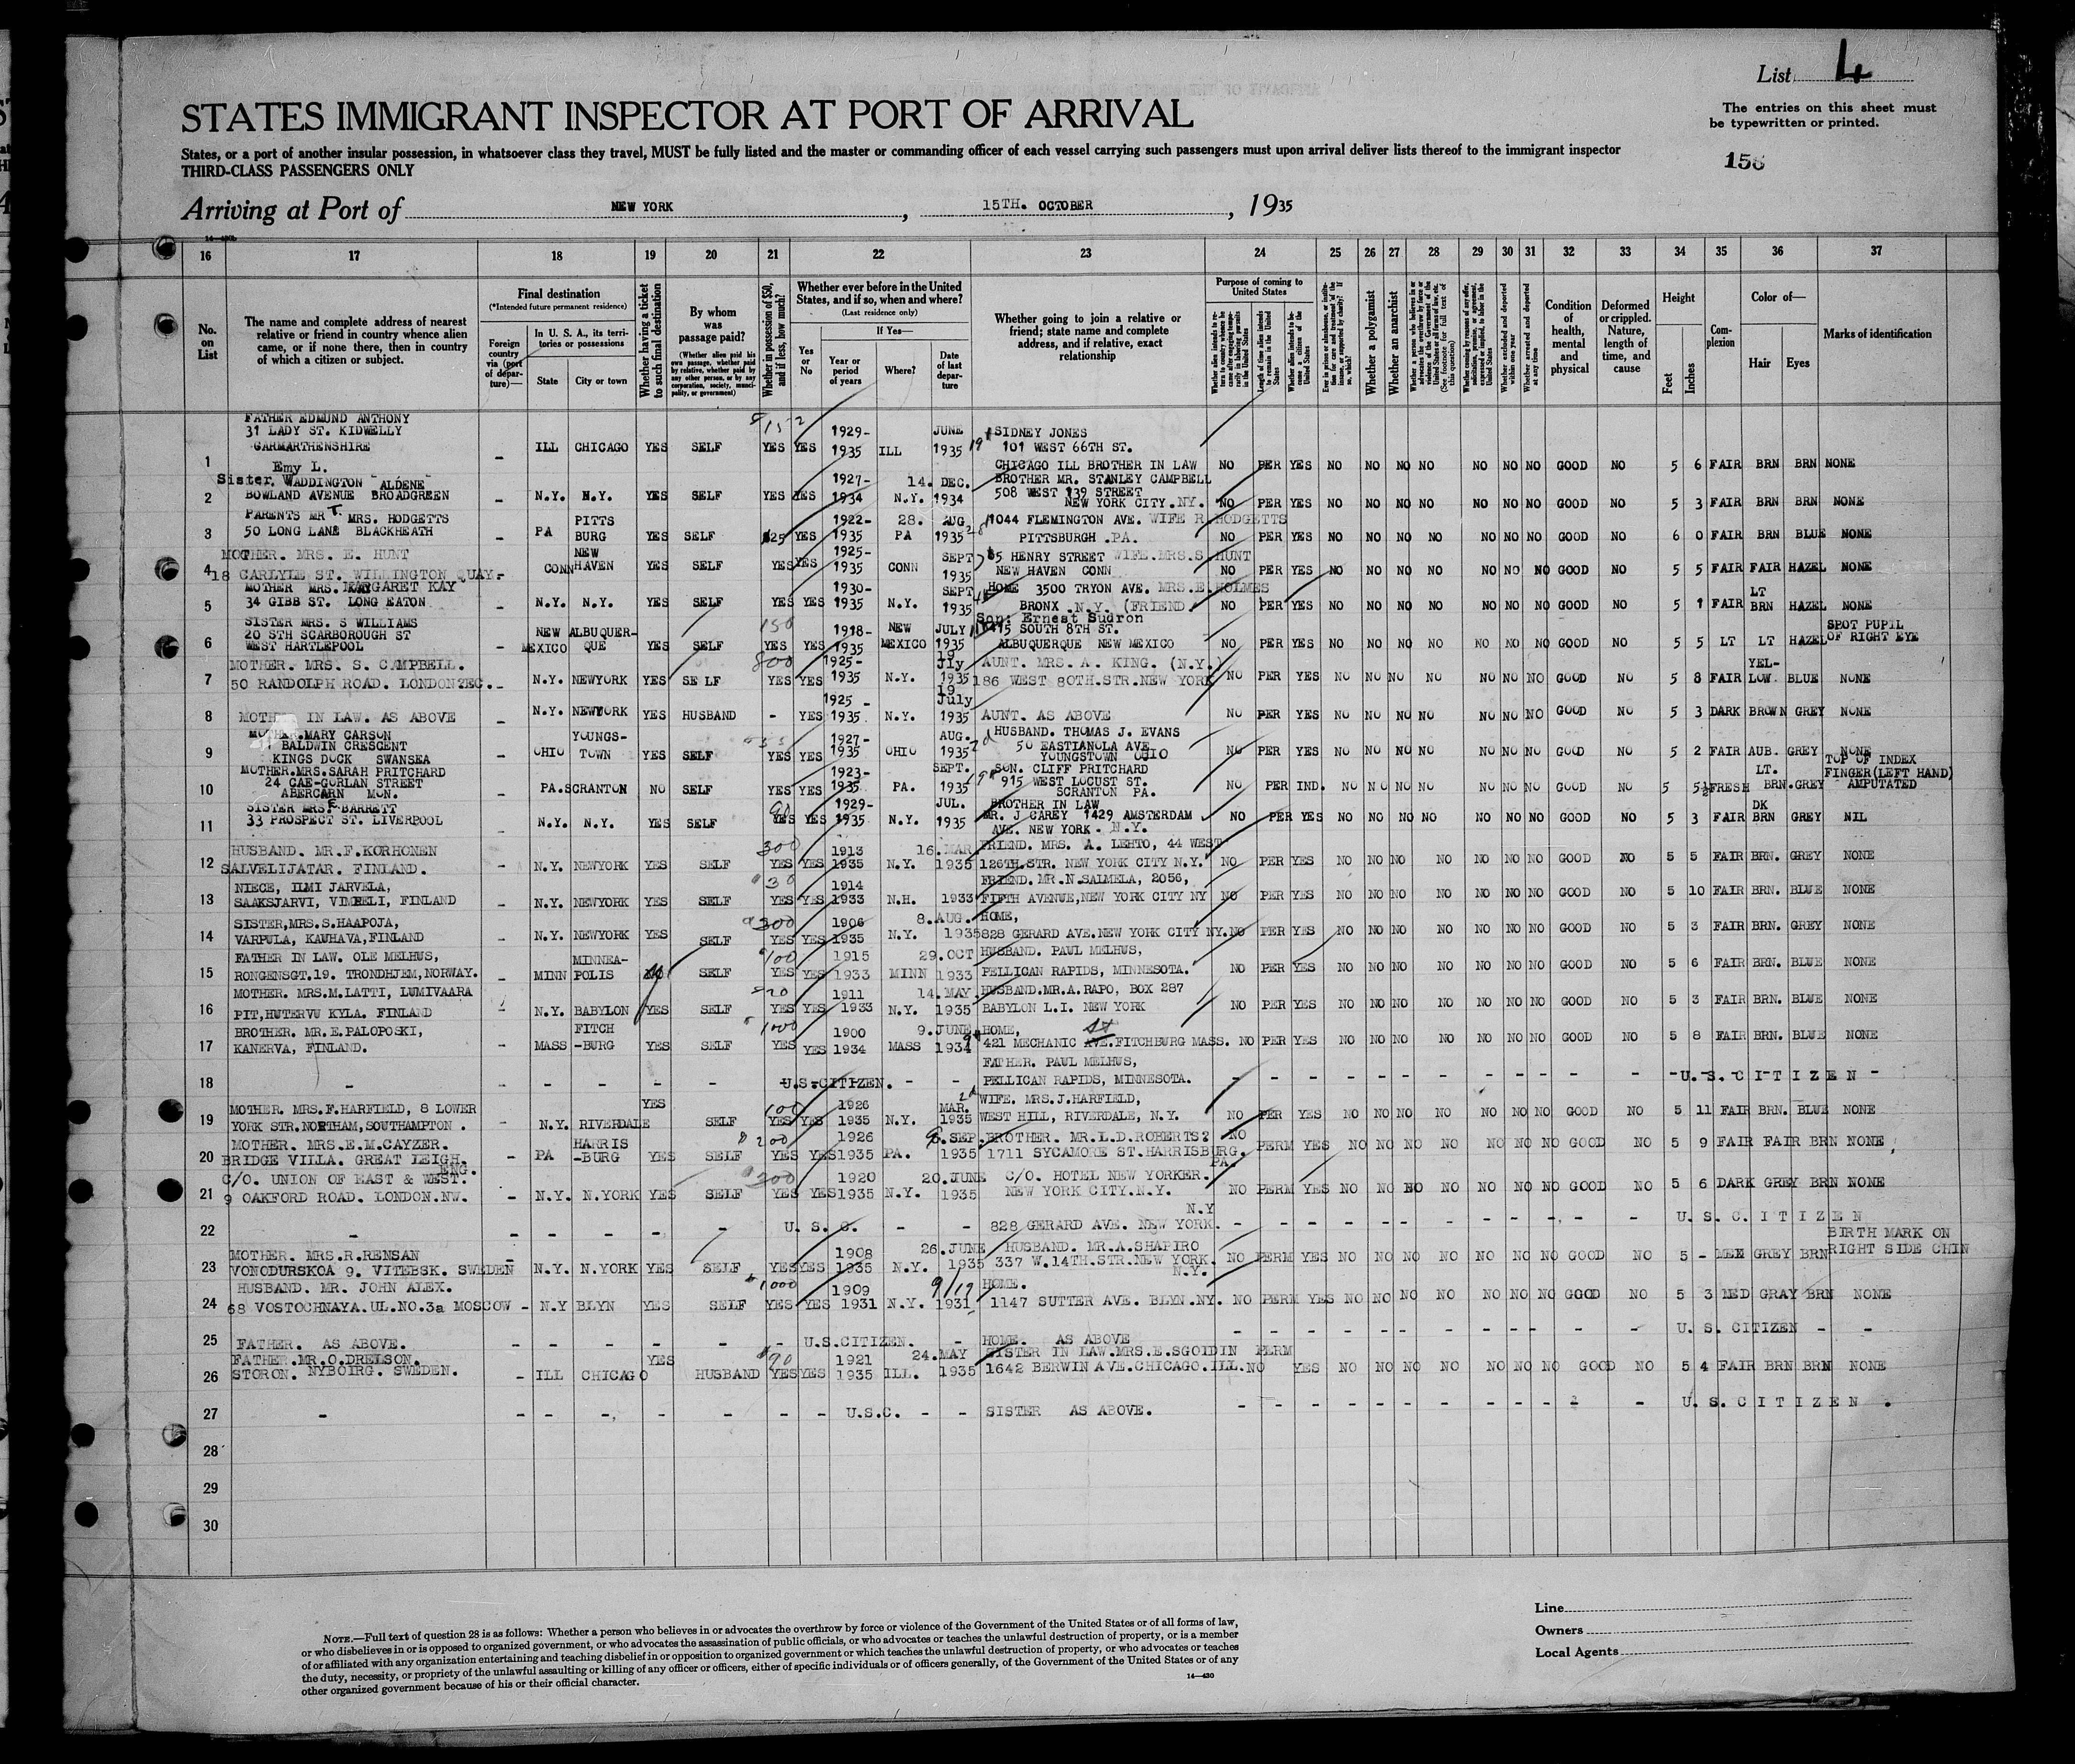 List 4
The entries on this sheet must
be typewritten or printed.
STATES IMMIGRANT INSPECTOR AT PORT OF ARRIVAL
States, or a port of another insular possession, in whatsoever class they travel, MUST be fully listed and the master or commanding officer of each vessel carrying such passengers must upon arrival deliver lists thereof to the immigrant inspector
THIRD-CLASS PASSENGERS ONLY
Arriving at Port of NEW YORK, 15TH. OCTOBER, 1935
16 17 18 19 20 21 22 23 24 25 26 27 28 29 30 31 32 33 34 35 36 37
No. on List
The name and complete address of nearest relative or friend in country whence alien came, or if none there, then in country of which a citizen or subject.
Final destination
(*Intended future permanent residence)
Foreign country via (port of departure)—
In U. S. A., its territories or possessions
State
City or town
Whether having a ticket to such final destination
By whom was passage paid?
(Whether alien paid his own passage, whether paid by relative, whether paid by any other person, or by any corporation, society, municipality, or government)
Whether in possession of $50, and if less, how much?
Whether ever before in the United States, and if so, when and where?
(Last residence only)
Yes or No
If Yes—
Year or period of years
Where?
Date of last departure
Whether going to join a relative or friend; state name and complete address, and if relative, exact relationship
Purpose of coming to United States
Whether a polygamist
Whether an anarchist
Condition of health, mental and physical
Deformed or crippled. Nature, length of time, and cause
Height
Feet
Inches
Complexion
Color of—
Hair
Eyes
Marks of identification
FATHER EDMUND ANTHONY
31 LADY ST. KIDWELLY
GARMARTHENSHIRE
1 – ILL CHICAGO YES SELF YES YES 1929-1935 ILL JUNE 1935 SIDNEY JONES 101 WEST 66TH ST. CHICAGO ILL BROTHER IN LAW NO PER YES NO NO NO NO NO NO NO GOOD NO 5 6 FAIR BRN BRN NONE
Emy L.
Sister. WADDINGTON "ALDENE"
BOWLAND AVENUE BROADGREEN
2 – N.Y. N.Y. YES SELF YES YES 1927-1934 N.Y. 14. DEC. 1934 BROTHER MR. STANLEY CAMPBELL 508 WEST 139 STREET NEW YORK CITY. NY. NO PER YES NO NO NO NO NO NO NO GOOD NO 5 3 FAIR BRN BRN NONE
PARENTS MR T. MRS. HODGETTS
50 LONG LANE BLACKHEATH
3 – PA PITTS BURG YES SELF $25 YES 1922-1935 PA 28. AUG 1935 1044 FLEMINGTON AVE. WIFE R HODGETTS PITTSBURGH .PA. NO PER YES NO NO NO NO NO NO NO GOOD NO 6 0 FAIR BRN BLUE NONE
MOTHER. MRS. E. HUNT
18 CARLYLE ST. WILLINGTON QUAY.
4 – CONN NEW HAVEN YES SELF YES YES 1925-1935 CONN SEPT 1935 85 HENRY STREET WIFE.MRS.S.HUNT NEW HAVEN CONN NO PER YES NO NO NO NO NO NO NO GOOD NO 5 5 FAIR FAIR HAZEL NONE
MOTHER MRS. MARGARET KAY
34 GIBB ST. LONG EATON
5 – N.Y. N.Y. YES SELF YES YES 1930-1935 N.Y. SEPT 1935 HOME 3500 TRYON AVE. MRS.E.HOLMES BRONX .N.Y. (FRIEND NO PER YES NO NO NO NO NO NO NO GOOD NO 5 1 FAIR LT BRN HAZEL NONE
SISTER MRS. S WILLIAMS
20 STH SCARBOROUGH ST
WEST HARTLEPOOL
6 – NEW MEXICO ALBUQUER-QUE YES SELF 150 YES YES 1918-1935 NEW MEXICO JULY 1935 Son: Ernest Sudron 415 SOUTH 8TH ST. ALBUQUERQUE NEW MEXICO NO PER YES NO NO NO NO NO NO NO GOOD NO 5 5 LT LT HAZEL SPOT PUPIL OF RIGHT EYE
MOTHER. MRS. S. CAMPBELL.
50 RANDOLPH ROAD. LONDON ZEC.
7 – N.Y. NEWYORK YES SELF 800 YES YES 1925-1935 N.Y. 19 Jly 1935 AUNT. MRS. A. KING. (N.Y.) 186 WEST 80TH.STR.NEW YORK NO PER YES NO NO NO NO NO NO NO GOOD NO 5 8 FAIR YEL-LOW. BLUE NONE
8 MOTHER IN LAW. AS ABOVE – N.Y. NEWYORK YES HUSBAND - YES 1925 - 1935 N.Y. 19 July 1935 AUNT. AS ABOVE NO PER YES NO NO NO NO NO NO NO GOOD NO 5 3 DARK BROWN GREY NONE
MOTHER.MARY CARSON
11 BALDWIN CRESCENT
KINGS DOCK SWANSEA
9 – OHIO YOUNGS-TOWN YES SELF YES YES 1927-1935 OHIO AUG. 1935 HUSBAND. THOMAS J. EVANS 50 EASTIANOLA AVE YOUNGSTOWN OHIO NO PER YES NO NO NO NO NO NO NO GOOD NO 5 2 FAIR AUB. GREY NONE
MOTHER.MRS.SARAH PRITCHARD
24 CAE-GORLAN STREET
ABERCARN MON.
10 – PA. SCRANTON NO SELF YES YES 1923-1935 PA. SEPT. 1935 SON. CLIFF PRITCHARD 915 WEST LOCUST ST. SCRANTON PA. NO PER IND. NO NO NO NO NO NO NO GOOD NO 5 5½ FRESH LT. BRN. GREY TOP OF INDEX FINGER(LEFT HAND) AMPUTATED
SISTER MRS E BARRETT
33 PROSPECT ST. LIVERPOOL
11 – N.Y. N.Y. YES SELF 90 YES YES 1929-1935 N.Y. JUL. 1935 BROTHER IN LAW MR. J CAREY 1429 AMSTERDAM AVE. NEW YORK - N.Y. NO PER YES NO NO NO NO NO NO NO GOOD NO 5 3 FAIR DK BRN GREY NIL
HUSBAND. MR.F.KORHONEN
SALVELIJATAR. FINLAND.
12 – N.Y. NEWYORK YES SELF 300 YES YES 1913 1935 N.Y. 16.MAR 1935 FRIEND. MRS. A. LEHTO, 44 WEST 126TH.STR. NEW YORK CITY N.Y. NO PER YES NO NO NO NO NO NO NO GOOD NO 5 5 FAIR BRN. GREY NONE
NIECE, ILMI JARVELA,
SAAKSJARVI, VIMPELI, FINLAND
13 – N.Y. NEWYORK YES SELF $30 YES YES 1914 1933 N.H. 1933 FRIEND. MR.N.SALMELA, 2056, FIFTH AVENUE,NEW YORK CITY NY NO PER YES NO NO NO NO NO NO NO GOOD NO 5 10 FAIR BRN. BLUE NONE
SISTER,MRS.S.HAAPOJA,
VARPULA, KAUHAVA,FINLAND
14 – N.Y. NEWYORK YES SELF 300 YES YES 1906 1935 N.Y. 8.AUG. 1935 HOME, 828 GERARD AVE.NEW YORK CITY NY. NO PER YES NO NO NO NO NO NO NO GOOD NO 5 3 FAIR BRN. GREY NONE
FATHER IN LAW. OLE MELHUS,
RONGENSGT.19. TRONDHJEM,NORWAY.
15 – MINN MINNEA-POLIS SELF 100 YES YES 1915 1933 MINN 29.OCT 1933 HUSBAND. PAUL MELHUS, PELLICAN RAPIDS, MINNESOTA. NO PER YES NO NO NO NO NO NO NO GOOD NO 5 6 FAIR BRN. BLUE NONE
MOTHER. MRS.M.LATTI, LUMIVAARA
PIT,HUTERVU KYLA. FINLAND
16 – N.Y. BABYLON YES SELF 20 YES YES 1911 1933 N.Y. 14.MAY. 1935 HUSBAND.MR.A.RAPO, BOX 287 BABYLON L.I. NEW YORK NO PER YES NO NO NO NO NO NO NO GOOD NO 5 3 FAIR BRN. BLUE NONE
BROTHER. MR.E.PALOPOSKI,
KANERVA, FINLAND.
17 – MASS FITCH-BURG YES SELF 1000 YES YES 1900 1934 MASS 9.JUNE 1934 HOME, 421 MECHANIC AVE. St FITCHBURG MASS. NO PER YES NO NO NO NO NO NO NO GOOD NO 5 8 FAIR BRN. BLUE NONE
18 - - - - - - U.S.CITIZEN. - - FATHER. PAUL MELHUS, PELLICAN RAPIDS, MINNESOTA. - - - U.S.CITIZEN -
MOTHER. MRS.F.HARFIELD, 8 LOWER
YORK STR.NORTHAM,SOUTHAMPTON .
19 N.Y. RIVERDALE YES SELF 100 YES YES 1926 1935 N.Y. MAR. 1935 WIFE. MRS.J.HARFIELD, WEST HILL, RIVERDALE, N.Y. NO PER YES NO NO NO NO NO NO NO GOOD NO 5 11 FAIR BRN. BLUE NONE
MOTHER. MRS.E.M.CAYZER.
BRIDGE VILLA. GREAT LEIGH. ENG.
20 – PA HARRIS-BURG YES SELF $200 YES YES 1926 1935 PA. SEP. 1935 BROTHER. MR.L.D.ROBERTS? 1711 SYCAMORE ST.HARRISBURG. PA. NO PERM YES NO NO NO NO NO NO NO GOOD NO 5 9 FAIR FAIR BRN NONE
C/O. UNION OF EAST & WEST.
9 OAKFORD ROAD. LONDON.NW.
21 – N.Y. N.YORK YES SELF 300 YES YES 1920 1935 N.Y. 20.JUNE 1935 C/O. HOTEL NEW YORKER. NEW YORK CITY.N.Y. NO PERM YES NO NO NO NO NO NO NO GOOD NO 5 6 DARK GREY BRN NONE
22 - - - - - - U. S. C. - - 828 GERARD AVE. NEW YORK. N.Y - - - U. S. CITIZEN
MOTHER. MRS.R.RENSAN
VONODURSKOA 9. VITEBSK. SWEDEN
23 – N.Y. N.YORK YES SELF YES YES 1908 1935 N.Y. 26.JUNE 1935 HUSBAND. MR.A.SHAPIRO 337 W.14TH.STR.NEW YORK. N.Y. NO PERM YES NO NO NO NO NO NO NO GOOD NO 5 - MEN GREY BRN BIRTH MARK ON RIGHT SIDE CHIN
HUSBAND. MR. JOHN ALEX.
68 VOSTOCHNAYA.UL.NO.3a MOSCOW
24 – N.Y BLYN YES SELF 1000 YES YES 1909 1931 N.Y. 9/17 1931 HOME. 1147 SUTTER AVE. BLYN.NY. NO PERM YES NO NO NO NO NO NO NO GOOD NO 5 3 MED GRAY BRN NONE
25 FATHER. AS ABOVE. - - - - - - U.S.CITIZEN. - HOME. AS ABOVE - - - U. S. CITIZEN - -
FATHER.MR.O.DRELSON.
STORON. NYBOIRG. SWEDEN.
26 – ILL CHICAGO YES HUSBAND $90 YES YES 1921 1935 ILL. 24.MAY 1935 SISTER IN LAW.MRS.E.SGOIDIN 1642 BERWIN AVE.CHICAGO.ILL. NO PERM YES NO NO NO NO NO NO NO GOOD NO 5 4 FAIR BRN BRN NONE
27 - - - - - - - - U.S.C. - - SISTER AS ABOVE. - - - U. S. CITIZEN .
28
29
30
NOTE.—Full text of question 28 is as follows: Whether a person who believes in or advocates the overthrow by force or violence of the Government of the United States or of all forms of law,
or who disbelieves in or is opposed to organized government, or who advocates the assassination of public officials, or who advocates or teaches the unlawful destruction of property, or is a member
of or affiliated with any organization entertaining and teaching disbelief in or opposition to organized government or which teaches the unlawful destruction of property, or who advocates or teaches
the duty, necessity, or propriety of the unlawful assaulting or killing of any officer or officers, either of specific individuals or of officers generally, of the Government of the United States or of any
other organized government because of his or their official character.
14—430
Line
Owners
Local Agents